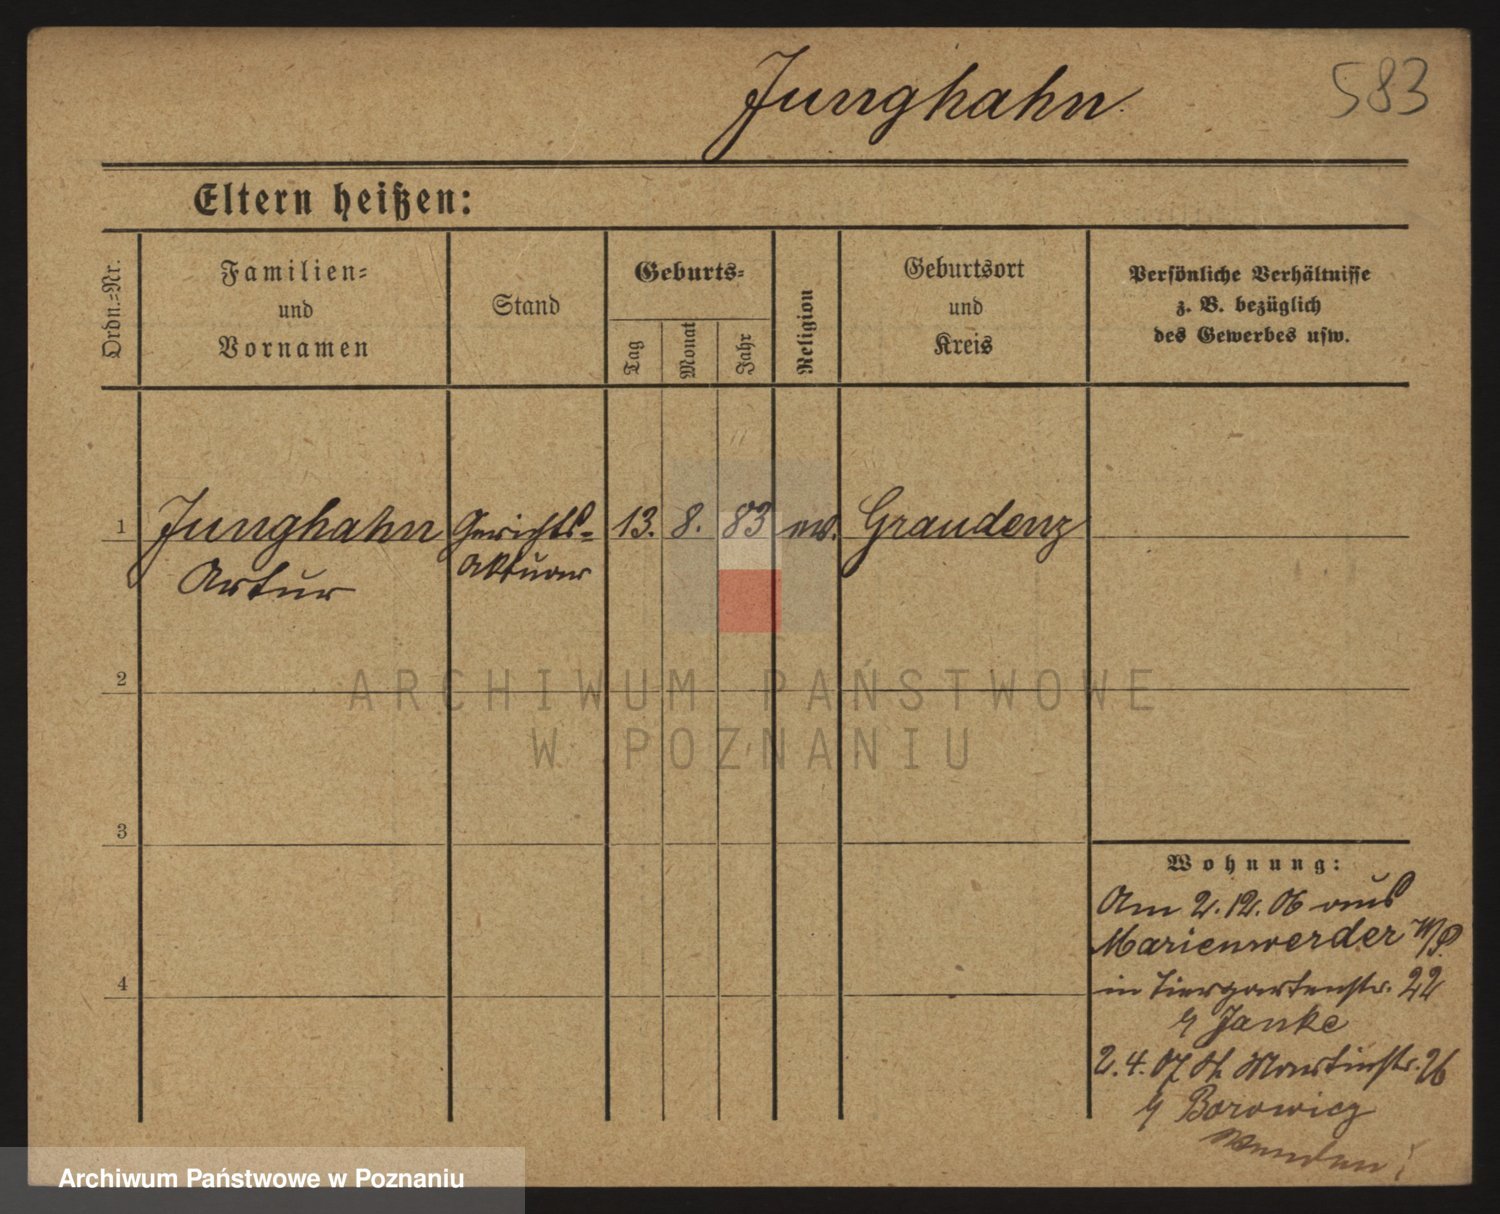 Junghahn
583
Eltern heißen:
Ordn.=Nr.
Familien=
und
Vornamen
Stand
Geburts=
Tag
Monat
Jahr
Religion
Geburtsort
und
Kreis
Persönliche Verhältnisse
z. B. bezüglich
des Gewerbes usw.
1
Junghahn
Artur
Gerichts=
aktuar
13.
8.
83
ev.
Graudenz
2
3
4
Wohnung:
Am 2.12.06 aus
Marienwerder W/P.
in Tiergartenstr. 22
Janke
2.4.07 St. Martinstr. 26
Borowicz
Wenden!
ARCHIWUM PAŃSTWOWE
W POZNANIU
Archiwum Państwowe w Poznaniu